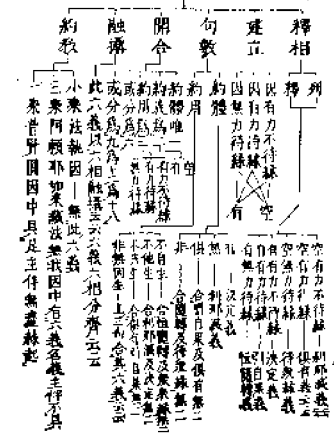 釋相
列
釋
空有力不待緣—剎那滅義
空有力待緣—俱有義
空無力待緣—待眾緣義
有有力不待緣—決定義
有有力待緣—引自果義
有無力待緣—恒隨轉義
建立
因有力不待緣
因有力待緣
因無力待緣
空
有
句數
約體
約用
有—決定義
無—剎那滅義
俱—合引自果及俱有無二
非—合恒隨轉及待眾緣無二
不自生—合恒隨轉及待眾緣無二
不他生—合剎那滅及決定無二
不共生—合俱有引自果無二
非無因生—上三句合其六義云云
開合
約體唯一
約義為二
空
有
約用為三
有力不待緣
有力待緣
無力待緣
或分為六
或分為九為十八
融攝
此六義以六相融攝云云六義六相分齊云云
約教
小乘法執因—無此六義
三乘阿賴耶如來藏法無我因中有六義名義主伴不具
一乘普賢圓因中具足主伴無盡緣起